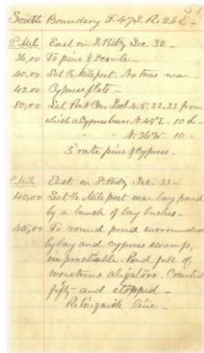 South Boundary T. 47 S. R. 26 E.
East on S. Bdry Sec. 32
36,00 To pine &
40,00 Set ¼ Mile post. No trees near
42,00 Cypress flats
80,00 Set Post Cor. Sect. 4. 5. 32. 33 from
which a Cypress bears N. 45° E. 10 L
N. 36 W. 10
3d rate, pine & Cypress.
East on S. Bdry Sec. 33
40,00 Set ¼ Mile post near bay pond
by a bunch of bay bushes
To round pond surrounded
by bay and cypress swamp,
impracticable. Pond full of
monstrous aligators. Counted
fifty and stopped.
Relinquish line.